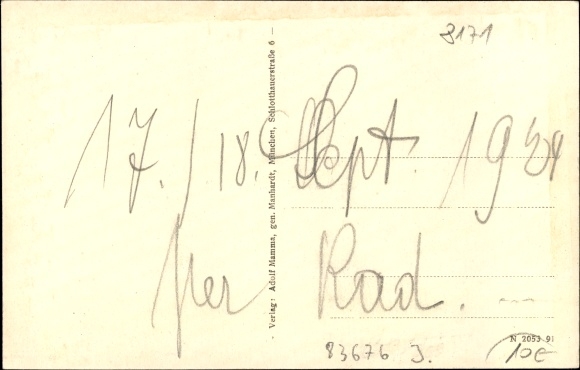 8171
17./18. Sept. 1934
per Rad.
- Verlag: Adolf Mamma, gen. Manhardt, München, Schlotthauerstraße 6 -
N 2053 91
83676 J.
10€